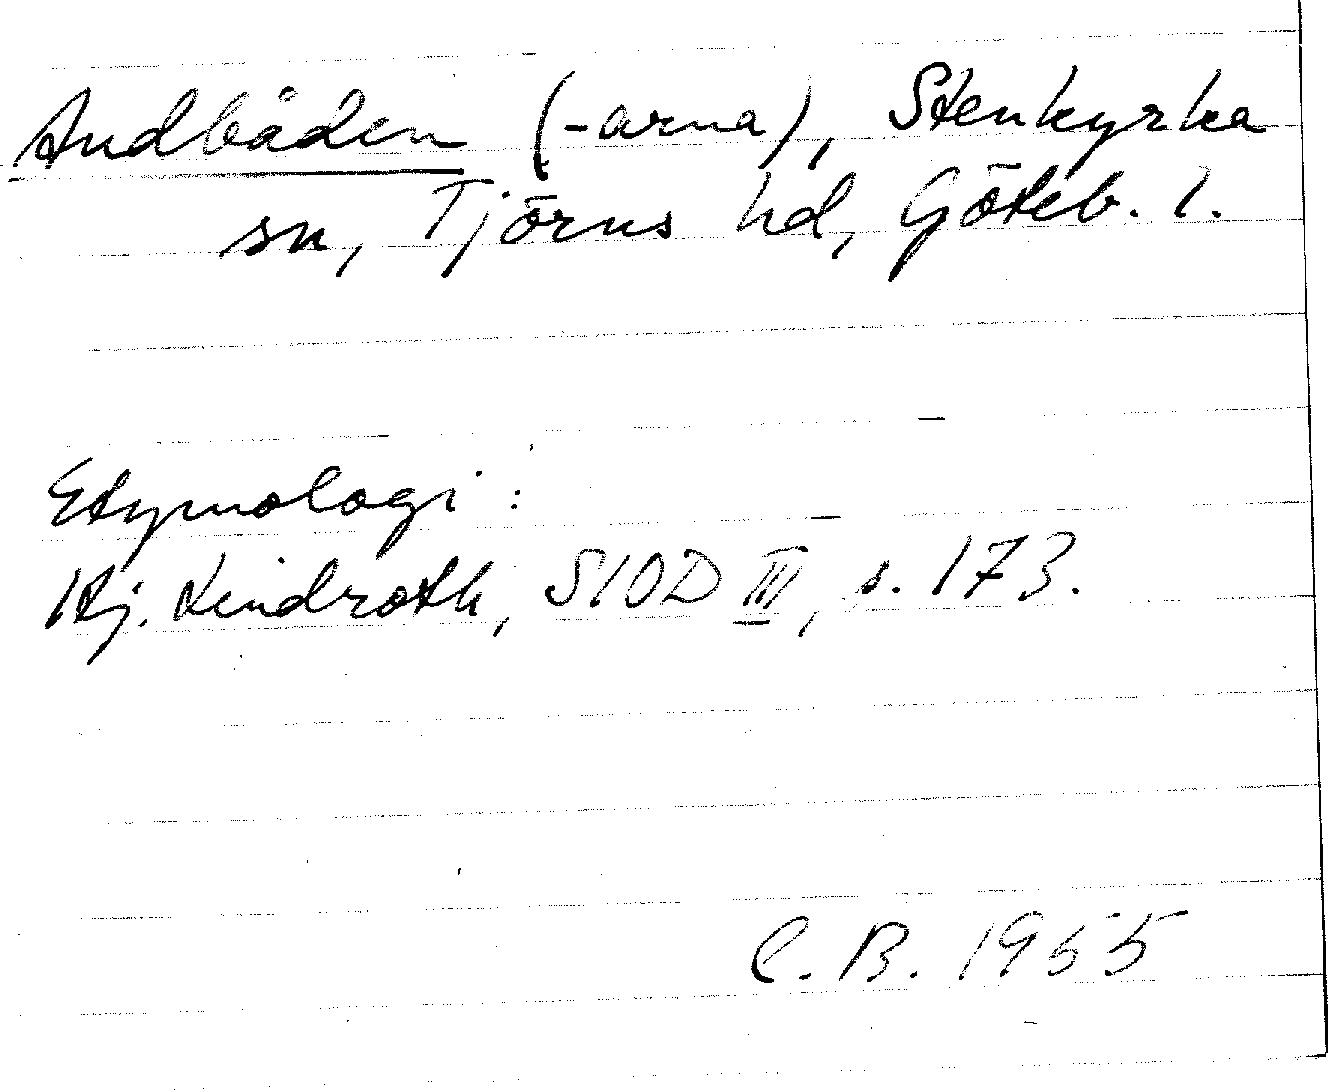 Andbåden (-arna), Stenkyrka
sn, Tjörns hd, Göteb. l.
Etymologi:
Hj. Lindroth, SIOD III, s. 173.
C. B. 1955